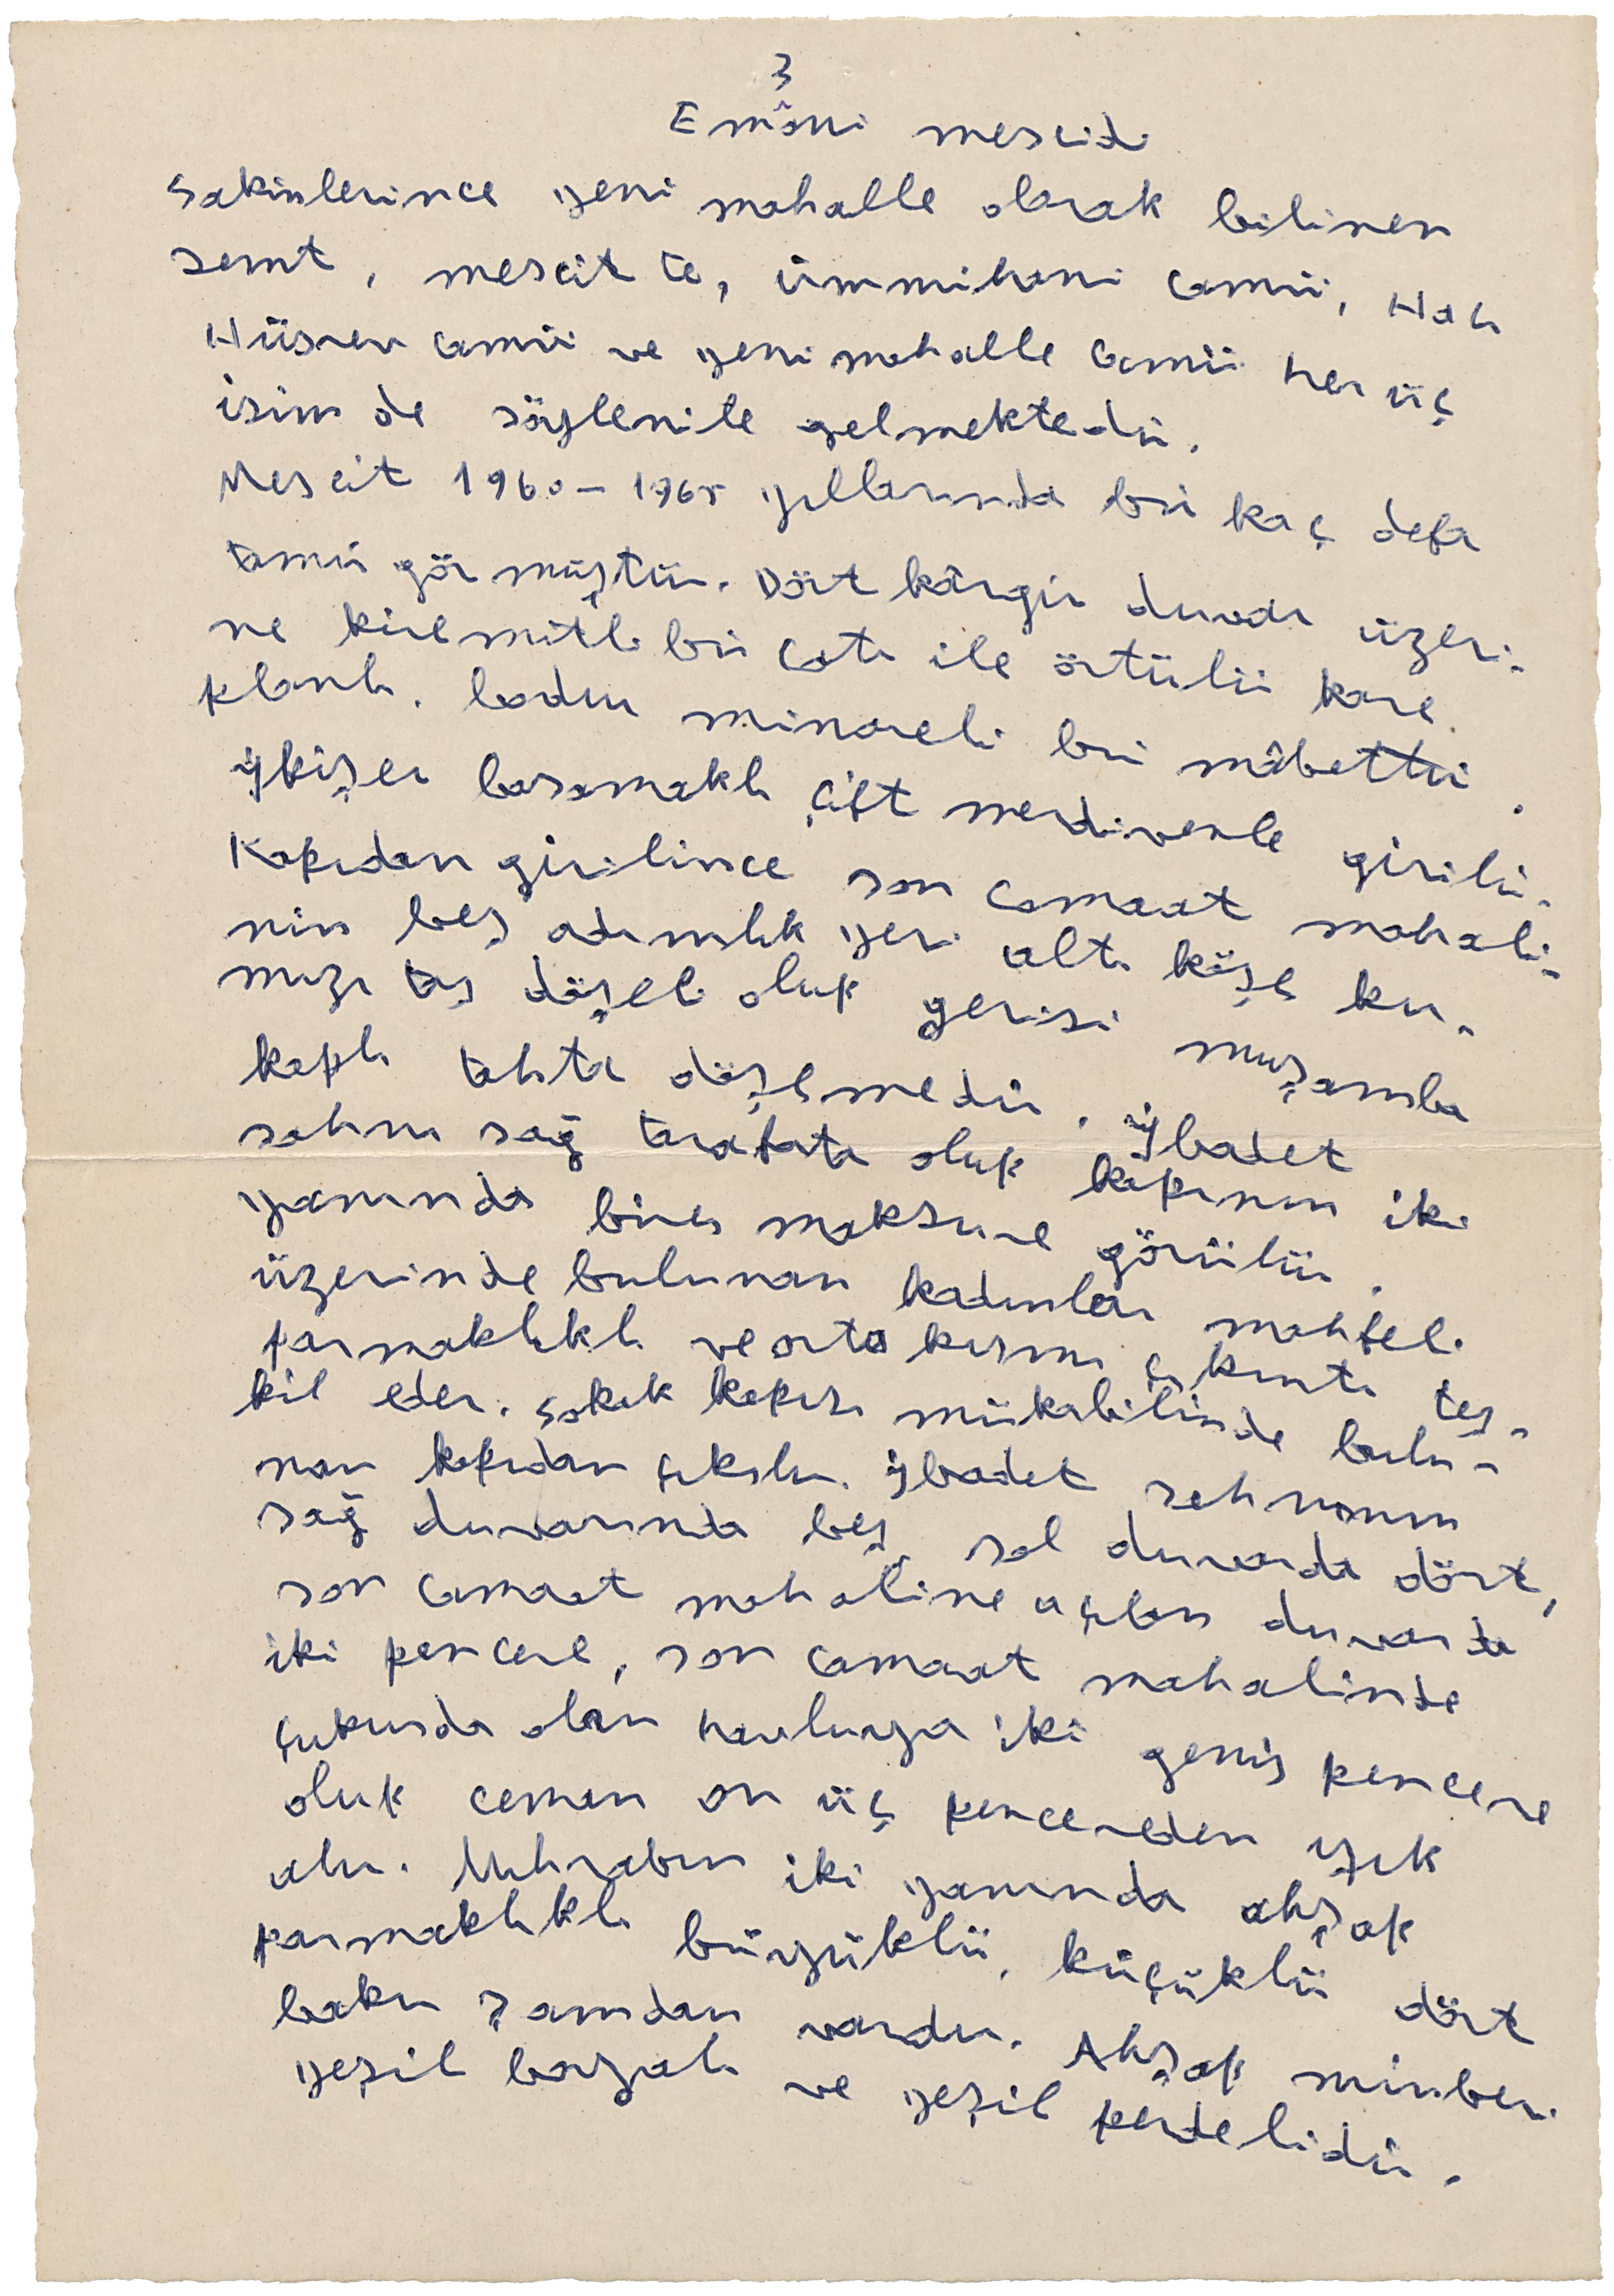 3
Emâni mescidi
Sakinlerince yeni mahalle olarak bilinen
semt, mescit te, ümmihani camii, Hacı
Hüsrev camii ve yeni mahalle camii her üç
isim de söylenile gelmektedir.
Mescit 1960-1965 yıllarında bir kaç defa
tamir görmüştür. Dört kârgir duvar üzeri-
ne kiremitli bir çatı ile örtülü kare
planlı, bodur minareli bir mâbettir.
İkişer basamaklı çift merdivenle girilir.
Kapıdan girilince son camaat mahali-
nin beş adımlık yeri altı köşe kır-
mızı taş döşeli olup gerisi muşamba
kaplı tahta döşemedir. İbadet
sahnı sağ tarafata olup kapının iki
yanında birer maksure görülür.
üzerinde bulunan kadınlar mahfeli
parmaklıklı ve orta kısmı çıkıntı teş-
kil eder. Sokak kapısı mükabilinde bulu-
nan kapıdan çıkılır. İbadet sahnının
sağ duvarında beş, sol duvarda dört,
son camaat mahaline açılan duvarda
iki pencere, son camaat mahalinde
çukurda olan havluya iki geniş pencere
olup ceman on üç pencereden ışık
alır. Mihrabın iki yanında ahşap
parmaklıklı büyüklü, küçüklü dört
bakır şamdan vardır. Ahşap minberi
yeşil boyalı ve yeşil perdelidir.